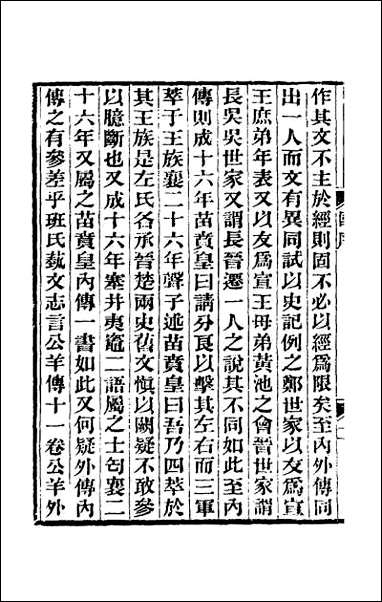 作其文不主於經則固不必以經爲限矣至內外傳同
出一人而文有異同試以史記例之鄭世家以友爲宣
王庶弟年表又以友爲宣王母弟黃池之會晉世家謂
長吳吳世家又謂長晉遷一人之說其不同如此至內
傳則成十六年苗賁皇曰請分良以擊其左右而三軍
萃于王族襄二十六年聲子述苗賁皇曰吾乃四萃於
其王族是左氏各承晉楚兩史舊文愼以闕疑不敢參
以臆斷也又成十六年塞井夷竈二語屬之士匄襄二
十六年又屬之苗賁皇內傳一書如此又何疑外傳內
傳之有參差乎班氏蓺文志言公羊傳十一卷公羊外